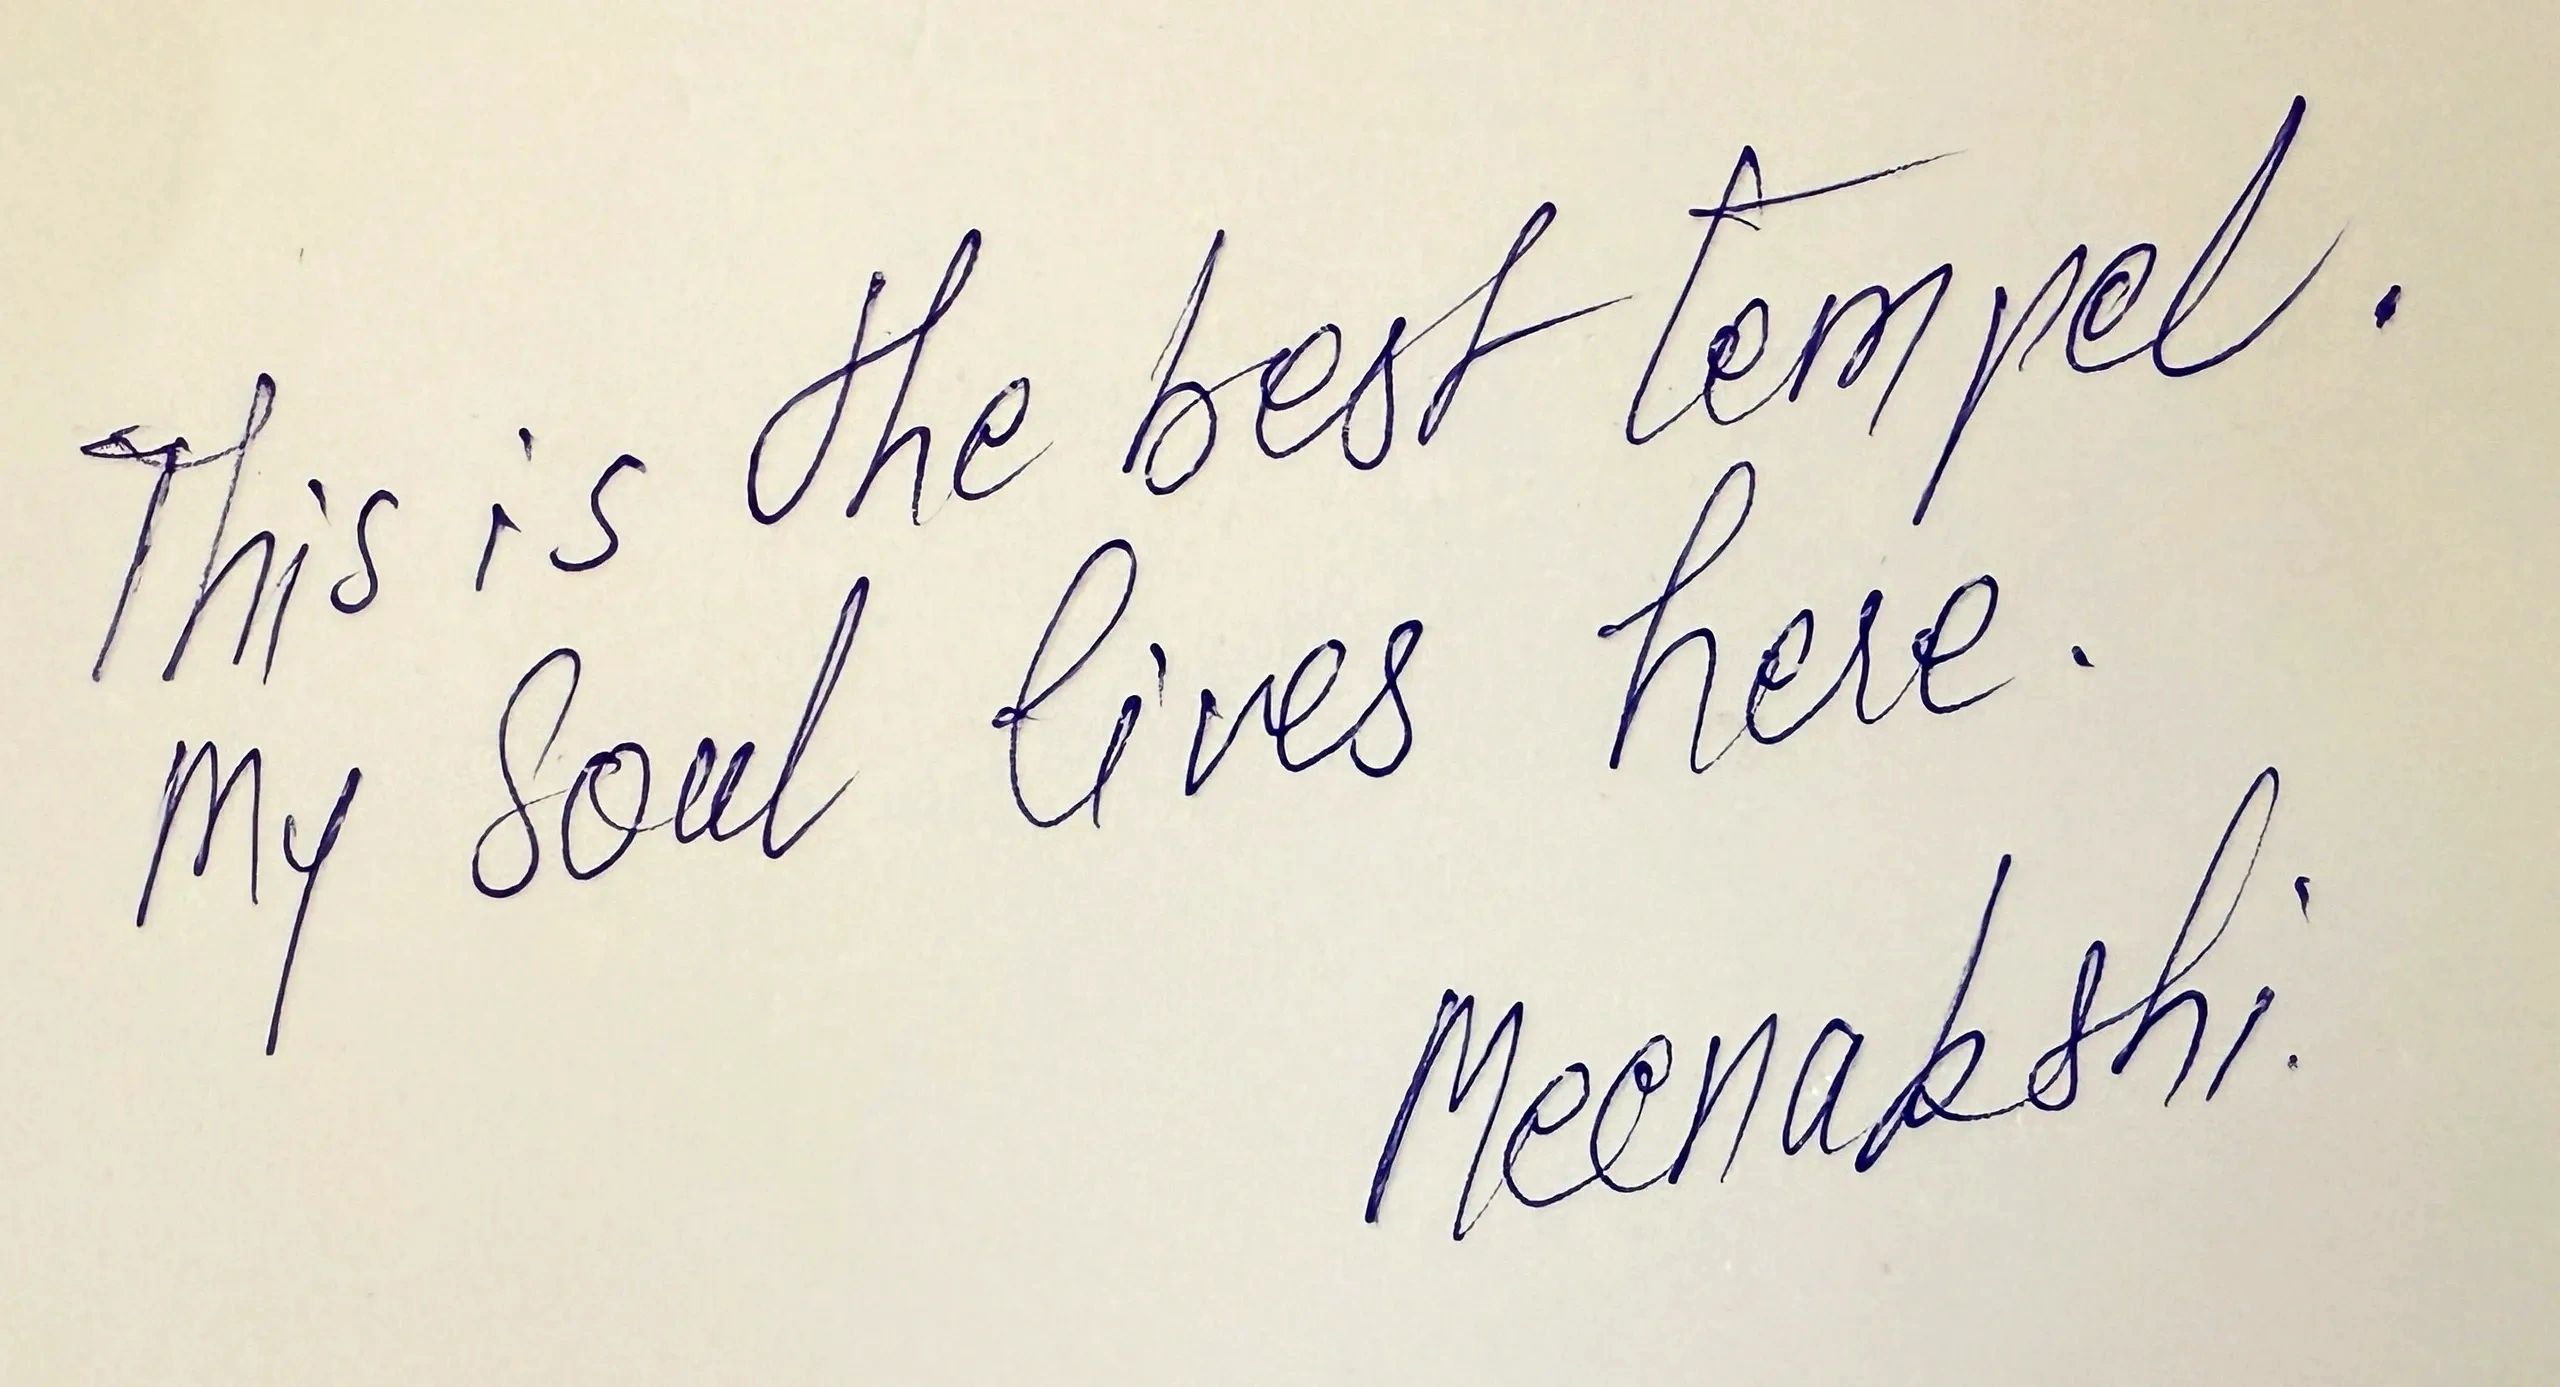 This is the best tempel.
My soul lives here.
Meenakshi.